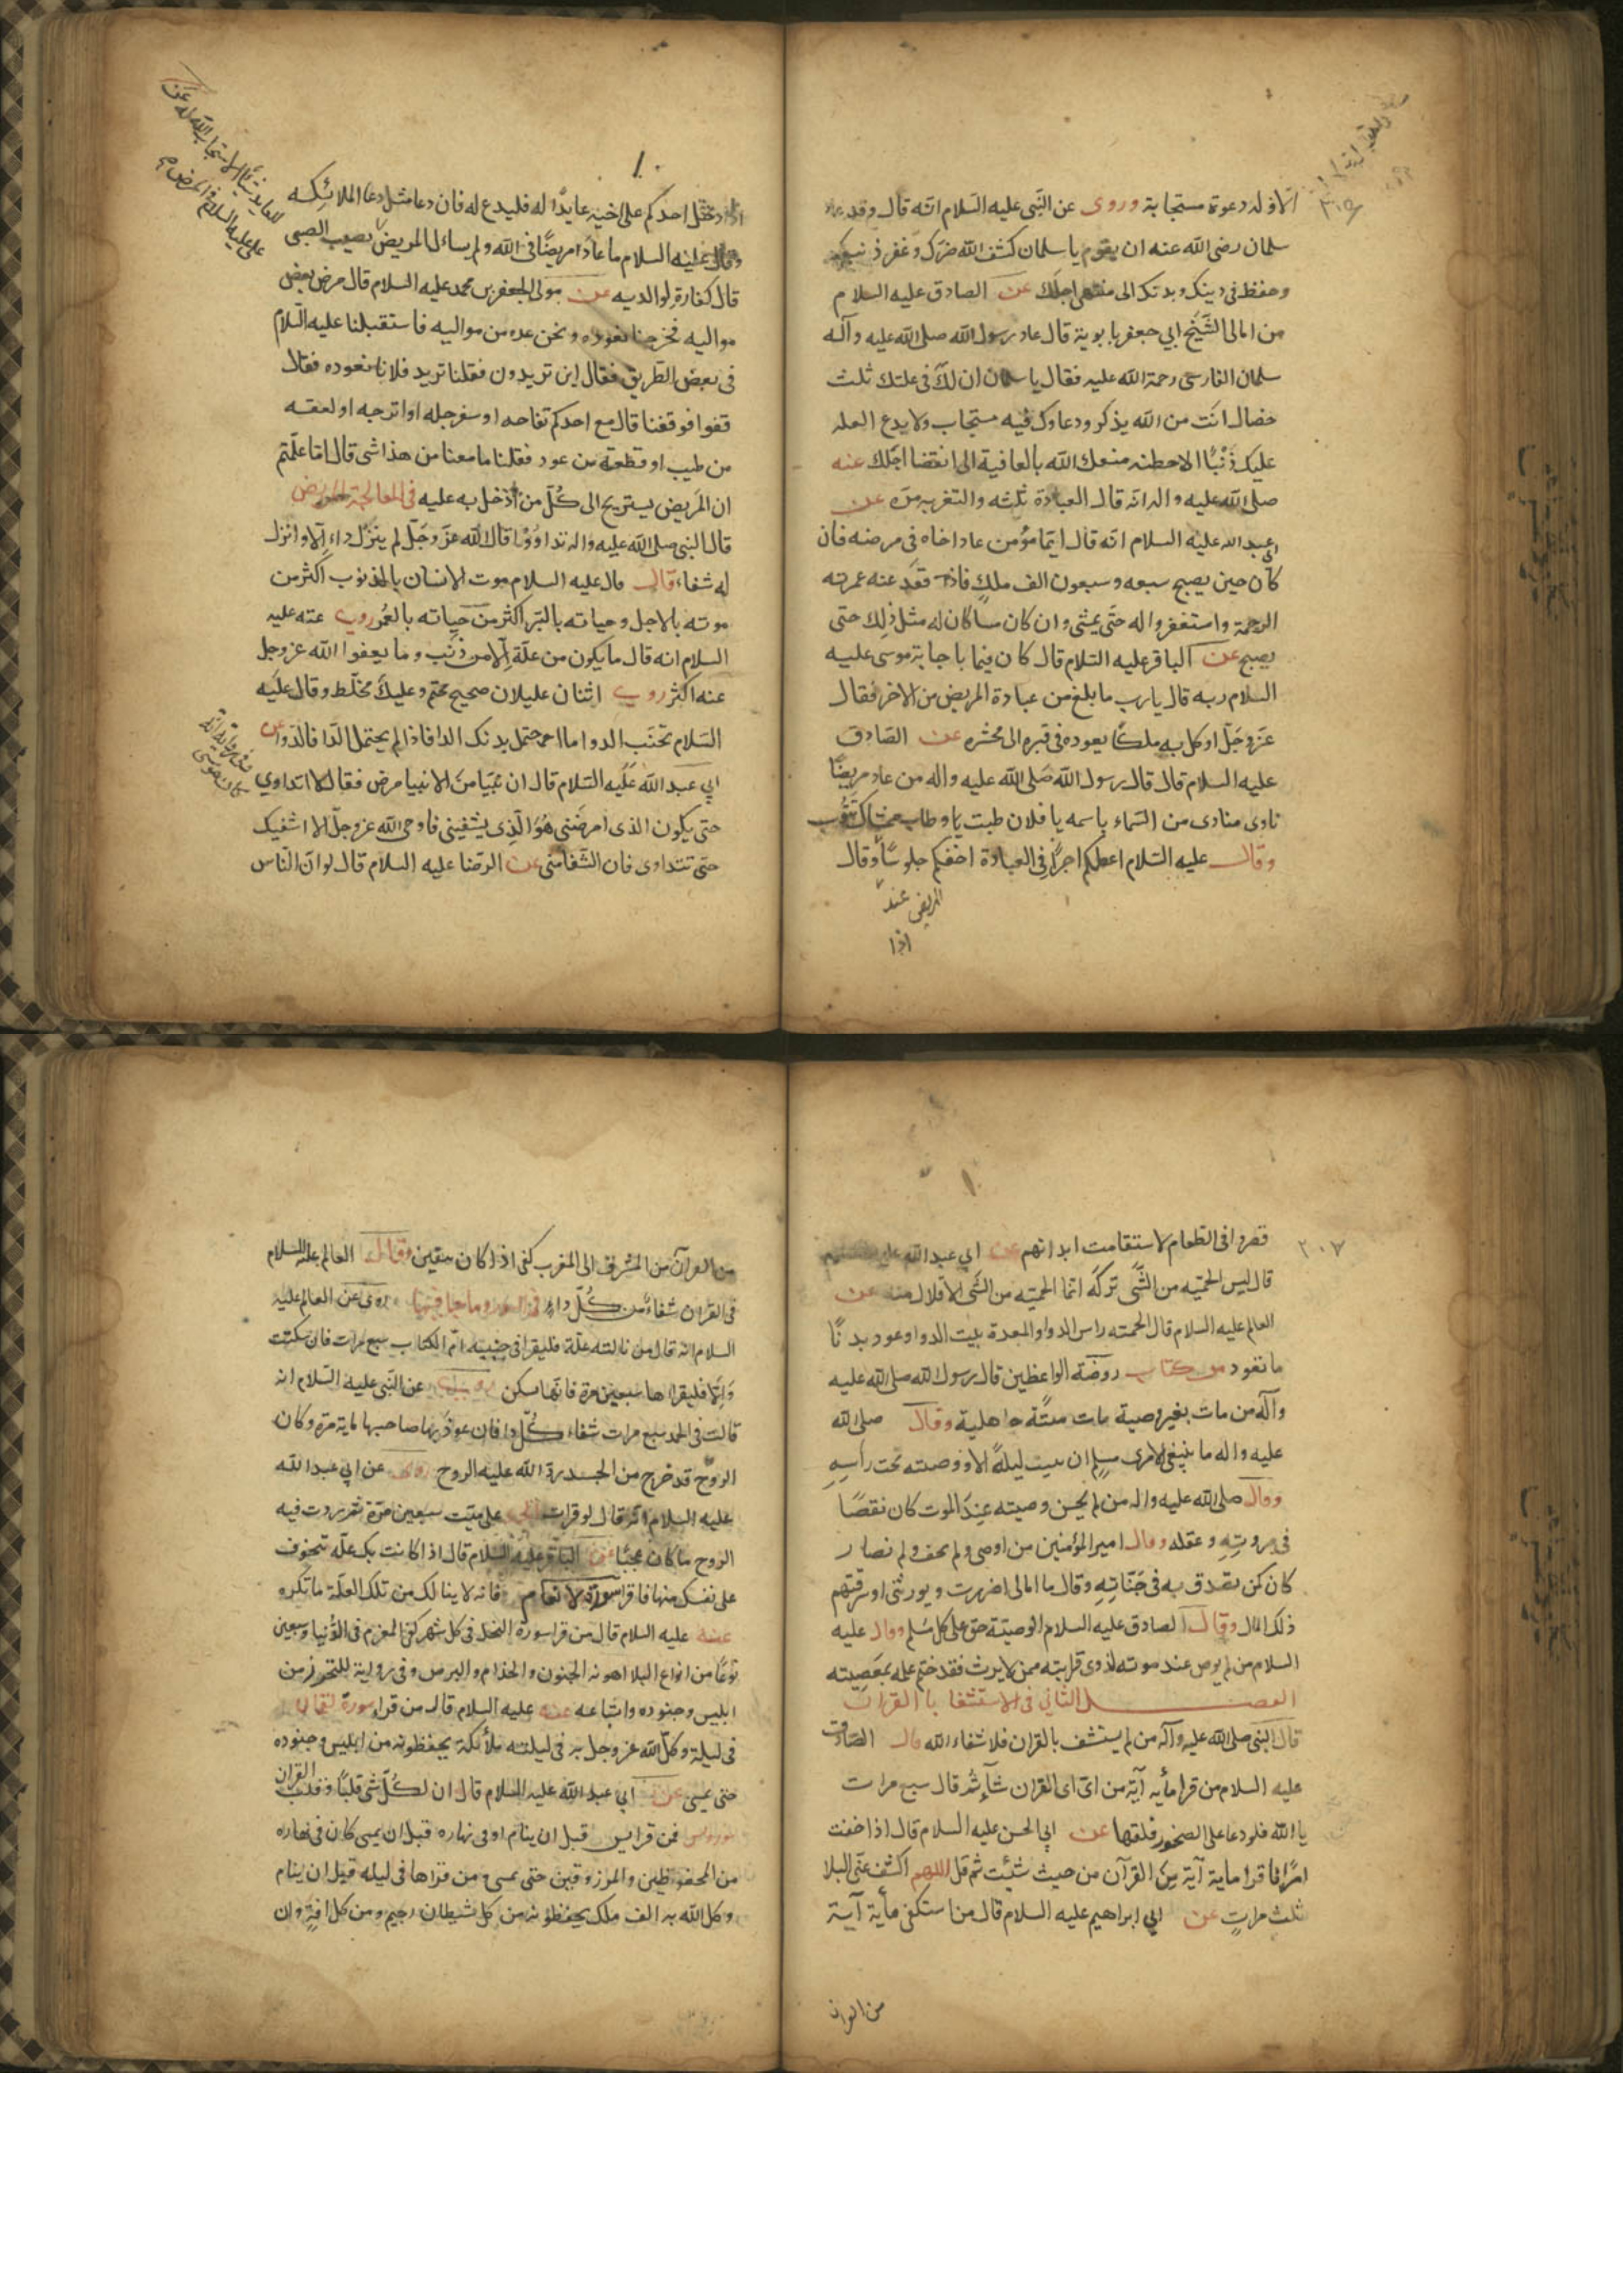 الا وله دعوة مستجابة وروى عن النبى عليه السلام انه قال وقد عاد
سلمان رضى الله عنه ان يقوم يا سلمان كشف الله ضرك وغفر ذنبك
وحفظ فى دينك وبدنك الى منتهى اجلك عن الصادق عليه السلام
من امالى الشيخ ابي جعفر بابوية قال عاد رسول الله صلى الله عليه وآله
سلمان الفارسى رحمة الله عليه فقال يا سلمان ان لك فى علتك ثلث
خصال انت من الله بذكر ودعاوك فيه مستجاب ولا يدع العله
عليك ذنبًا الا حطته متعك الله بالعافية الى انقضا اجلك عنه
صلى الله عليه واله انه قال العيادة ثلثه والتعزيه مرة عن
ابى عبد الله عليه السلام انه قال ايما مؤمن عاد اخاه فى مرضه فان
كان حين يصبح سبعه وسبعون الف ملك فاذا قعد عنده غمرته
الرحمة واستغفروا له حتى يمشى وان كان مسا كان له مثل ذلك حتى
يصبح عن الباقر عليه السلام قال كان فيما ناجا به موسى عليه
السلام ربه قال يا رب ما بلغ من عيادة المريض من الاخر فقال
عز وجل اوكل به ملكًا يعوده فى قبره الى محشره عن الصادق
عليه السلام قال قال رسول الله صلى الله عليه واله من عاد مريضًا
نادى منادى من السماء باسمه يا فلان طبت وطاب ممشاك
وقال عليه السلام اعظمكم اجرًا فى العيادة اخفكم جلوسًا وقال
عند المريض
اذا
اذا دخل احدكم على اخيه عايدًا له فليدع له فان دعا مثل دعا الملائكه
وقال عليه السلام ما عاد امريضًا فى الله ولم يسائل المريض يصيب الصبى
قال كفارة لوالديه عن مولى لجعفر بن محمد عليه السلام قال مرض بعض
مواليه فخرجنا نعوده ونحن عده من مواليه فاستقبلنا عليه السلام
فى بعض الطريق فقال اين تريدون فقلنا نريد فلانا نعوده فقال
قفوا فوقفنا قال مع احدكم تفاحه او سفرجله او اترجه او لعقه
من طيب او قطعة من عود فقلنا ما معنا من هذا شى قال اما علمتم
ان المريض يستريح الى كل من ادخل به عليه فى المعالجة المريض
قال النبى صلى الله عليه واله تداووا قال الله عز وجل لم ينزل داء الا وانزل
له شفاء قال قال عليه السلام موت الانسان بالذنوب اكثر من
موته بالاجل وحياته بالبر اكثر من حياته بالعمر روى عنه عليه
السلام انه قال ما يكون من علة الا من ذنب وما يعفوا الله عز وجل
عنه اكثر روى اثنان عليلان صحيح محتم وعليك مخلط وقال عليه
السلام تجنب الدوا ما احتمل بدنك الدا فاذا لم يحتمل الدا فالدوا عن
ابي عبد الله عليه السلام قال ان نبيا من الانبيا مرض فقال لا اتداوي
حتى يكون الذى امرضنى هو الذى يشفينى فاوحى الله عز وجل لا اشفيك
حتى تتداوى فان الشفا منى عن الرضا عليه السلام قال لو ان الناس
٢٠٧
قصروا فى الطعام لاستقامت ابدانهم عن ابي عبد الله عليه السلام
قال ليس الحميه من الشى تركه انما الحميه من الشى الاقلال منه عن
العالم عليه السلام قال الحميه راس الدوا والمعدة بيت الدوا وعود بدنًا
ما تعود من كتاب روضة الواعظين قال رسول الله صلى الله عليه
وآله من مات بغير وصية مات ميتة جاهلية وقال صلى الله
عليه واله ما ينبغى لامرى مسلم ان يبيت ليلة الا ووصيته تحت رأسه
وقال صلى الله عليه واله من لم يحسن وصيته عند الموت كان نقصًا
فى مروته وعقله وقال امير المؤمنين من اوصى ولم يحف ولم يضار
كان كمن تصدق به فى حياته وقال ما ابالى اضررت ويورثنى او سرقتهم
ذلك المال وقال الصادق عليه السلام الوصية حق على كل مسلم وقال عليه
السلام من لم يوص عند موته لذوى قرابته ممن لا يرث فقد ختم عمله بمعصيته
الفصل الثانى فى الاستشفا بالقران
قال النبى صلى الله عليه وآله من لم يستشف بالقران فلا شفاء الله قال الصادق
عليه السلام من قرا مأيه آية من اى القران شآء ثم قال سبع مرات
يا الله فلو دعا على الصخور فلقها عن ابي الحسن عليه السلام قال اذا خفت
امرًا فاقرا ماية آية من القرآن من حيث شئت ثم قل اللهم اكشف عنى البلا
ثلث مرات عن ابي ابراهيم عليه السلام قال من استكفى مأية آية
من القران
من القرآن من المشرق الى المغرب كفى اذا كان بيقين وقال العالم عليه السلام
فى القران شفاء من كل داء روى عن العالم عليه
السلام انه قال من نالته علة فليقرا فى جنبيه ام الكتاب سبع مرات فان سكنت
والا فليقراها سبعين مرة فانها تسكن روى عن النبى عليه السلام انه
قال فى الحمد سبع مرات شفاء كل دا فان عوذ بها صاحبها ماية مرة وكان
الروح قد خرج من الجسد رد الله عليه الروح روى عن ابي عبد الله
عليه السلام انه قال لو قرات الحمد على ميت سبعين مرة ثم ردت فيه
الروح ما كان عجبًا عن الباقر عليه السلام قال اذا كانت بك علة تتخوف
على نفسك منها فاقرا سورة الانعام فانه لا ينالك من تلك العلة ما تكره
عنه عليه السلام قال من قرا سورة النحل فى كل شهر كفى المغرم فى الدنيا وسبعين
نوعًا من انواع البلا اهونه الجنون والجذام والبرص وفى رواية للتحرز من
ابليس وجنوده واشياعه عنه عليه السلام قال من قرا سورة لقمان
فى ليلة وكل الله عز وجل به فى ليلته ملائكة يحفظونه من ابليس وجنوده
حتى يمسى عن ابي عبد الله عليه السلام قال ان لكل شى قلبًا وقلب القران
يس فمن قرا يس قبل ان ينام او فى نهاره قبل ان يمسى كان فى نهاره
من المحفوظين والمرزوقين حتى يمسى ومن قراها فى ليله قبل ان ينام
وكل الله به الف ملك يحفظونه من كل شيطان رجيم ومن كل افة وان